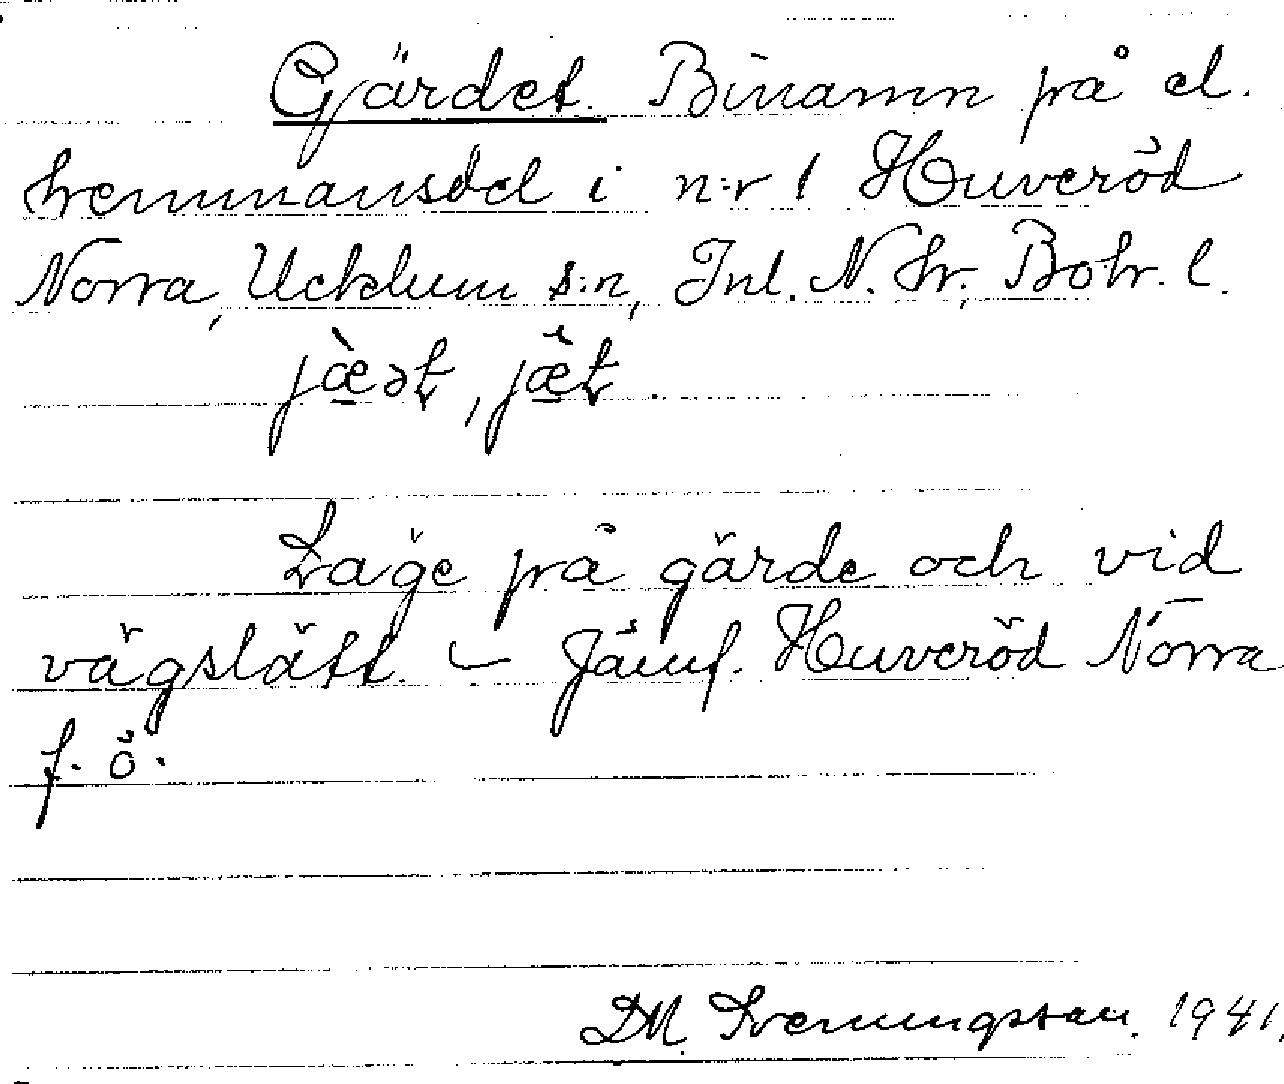 Gjärdet. Binamn på el.
hemmansdel i n:r 1 Huveröd
Norra, Ucklum s:n, Inl. N. hr, Boh. l.
jæ̀ət, jæ̀t.
Läge på gärde och vid
vägslätt. – Jämf. Huveröd Norra
f. ö.
DM. Svenungsson. 1941.